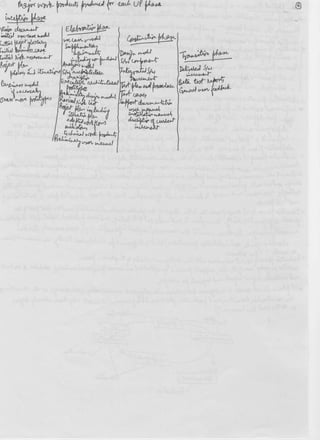 Major work products produced for each UP phase
Inception phase
Vision document
Initial use-case model
Initial project glossary
Initial business case
Initial risk assessment
Project plan
phases and iterations
Business model
if necessary
One or more prototypes
Elaboration phase
use case model
Supplementary
requirements
including non functional
Analysis model
S/w architecture
description
Executable architectural
prototype
Preliminary design model
Revised risk list
Project plan including
iteration plan
adapted workflows
milestones
technical work products
Preliminary user manual
Construction phase
Design model
S/w components
Integrated S/w
increment
Test plan and procedure
Test cases
Support documentation
user manuals
installation manuals
description of current
increment
Transition phase
Delivered S/w
increment
Beta test reports
General user feedback